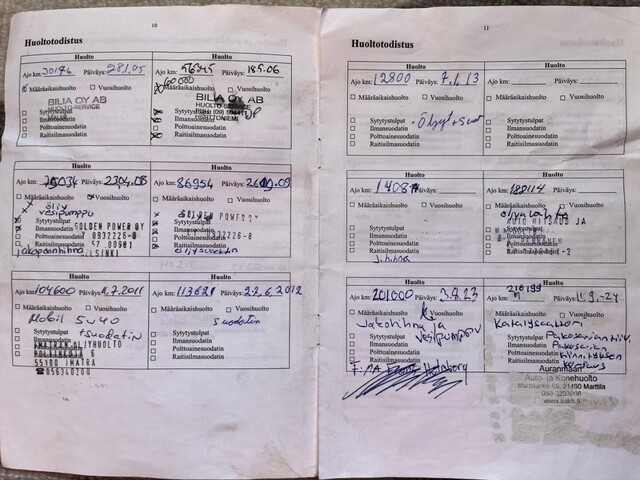 10
Huoltotodistus
Huolto
Ajo km: 30176 Päiväys: 28.1.05
Määräaikaishuolto Vuosihuolto
BILIA OY AB
HUOLTO-SERVICE
Sytytystulpat
Ilmansuodatin
Polttoainesuodatin
Raitisilmasuodatin
Huolto
Ajo km: 56345 Päiväys: 18.5.06
60000
Määräaikaishuolto Vuosihuolto
BILIA OY AB
HUOLTO-SERVICE
Sytytystulpat
Ilmansuodatin
Polttoainesuodatin
Raitisilmasuodatin
Huolto
Ajo km: 75034 Päiväys: 23.04.08
Määräaikaishuolto Vuosihuolto
öljy
vesipumppu
Sytytystulpat
Ilmansuodatin GOLDEN POWER OY
Polttoainesuodatin 0932226-8
Raitisilmasuodatin 57.00981
jakopäänhihna HELSINKI
Huolto
Ajo km: 86954 Päiväys:
Määräaikaishuolto Vuosihuolto
GOLDEN POWER OY
Sytytystulpat
Ilmansuodatin
Polttoainesuodatin 0932226-8
Raitisilmasuodatin
öljysuodatin
Huolto
Ajo km: 104600 Päiväys: 1.7.2011
Määräaikaishuolto Vuosihuolto
Mobil 5w40
Sytytystulpat +suodatin
Ilmansuodatin
IMATRAN ÖLJYHUOLTO
Polttoainesuodatin 6
Raitisilmasuodatin
55100 IMATRA
☎056840200
Huolto
Ajo km: 113621 Päiväys: 27.6.2012
Määräaikaishuolto Vuosihuolto
suodatin
Sytytystulpat
Ilmansuodatin
Polttoainesuodatin
Raitisilmasuodatin
11
Huoltotodistus
Huolto
Ajo km: 12800 Päiväys: 7.1.13
Määräaikaishuolto Vuosihuolto
Öljyt + suod
Sytytystulpat
Ilmansuodatin
Polttoainesuodatin
Raitisilmasuodatin
Huolto
Ajo km: Päiväys:
Määräaikaishuolto Vuosihuolto
Sytytystulpat
Ilmansuodatin
Polttoainesuodatin
Raitisilmasuodatin
Huolto
Ajo km: Päiväys:
Määräaikaishuolto Vuosihuolto
Sytytystulpat
Ilmansuodatin
Polttoainesuodatin
Raitisilmasuodatin
j.hihna
Huolto
Ajo km: Päiväys:
Määräaikaishuolto Vuosihuolto
AUTO HITSAUS JA
Sytytystulpat
Ilmansuodatin
Polttoainesuodatin
Raitisilmasuodatin
Huolto
Ajo km: 201000 Päiväys: 3.8.23
Määräaikaishuolto Vuosihuolto
Jakohihna ja
vesipumppu
Sytytystulpat
Ilmansuodatin
Polttoainesuodatin
Raitisilmasuodatin
F:MA Holmborg
Huolto
216199
Ajo km: Päiväys: 11.9.-24
Määräaikaishuolto Vuosihuolto
Katalysaattori
Sytytystulpat Pakosarjan tiiv.
Ilmansuodatin Pakosarjan
Polttoainesuodatin kiinnityksen
Raitisilmasuodatin korjaus
Auranmaan
Auto- ja Konehuolto
21490 Marttila